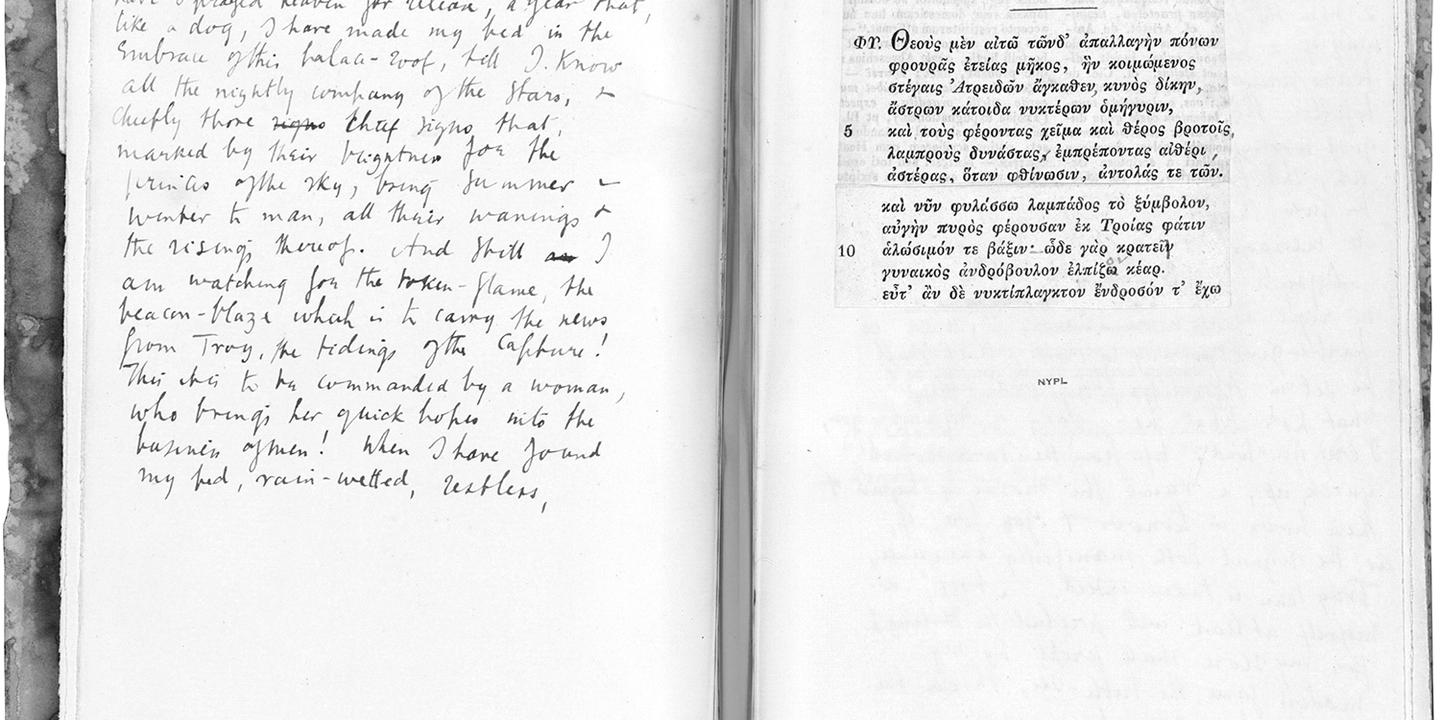 have I prayed heaven for release, a year that,
like a dog, I have made my bed in the
embrace of this palace-roof, till I know
all the nightly company of the stars, +
chiefly those signs chief signs that,
marked by their brightness for the
princes of the sky, bring summer +
winter to man, all their wanings +
the risings thereof. And still am I
am watching for the token-flame, the
beacon-blaze which is to carry the news
from Troy, the tidings of the capture!
This it is to be commanded by a woman,
who brings her quick hopes into the
business of men! When I have found
my bed, rain-wetted, restless,
ΦΥ. Θεοὺς μὲν αἰτῶ τῶνδ' ἀπαλλαγὴν πόνων
φρουρᾶς ἐτείας μῆκος, ἣν κοιμώμενος
στέγαις Ἀτρειδῶν ἄγκαθεν, κυνὸς δίκην,
ἄστρων κάτοιδα νυκτέρων ὁμήγυριν,
5 καὶ τοὺς φέροντας χεῖμα καὶ θέρος βροτοῖς,
λαμπροὺς δυνάστας, ἐμπρέποντας αἰθέρι,
ἀστέρας, ὅταν φθίνωσιν, ἀντολάς τε τῶν.
καὶ νῦν φυλάσσω λαμπάδος τὸ ξύμβολον,
αὐγὴν πυρὸς φέρουσαν ἐκ Τροίας φάτιν
10 ἁλώσιμόν τε βάξιν· ὧδε γὰρ κρατεῖν
γυναικὸς ἀνδρόβουλον ἐλπίζω κέαρ.
ον
εὖτ' ἂν δὲ νυκτίπλαγκτον ἔνδροσόν τ' ἔχω
NYPL